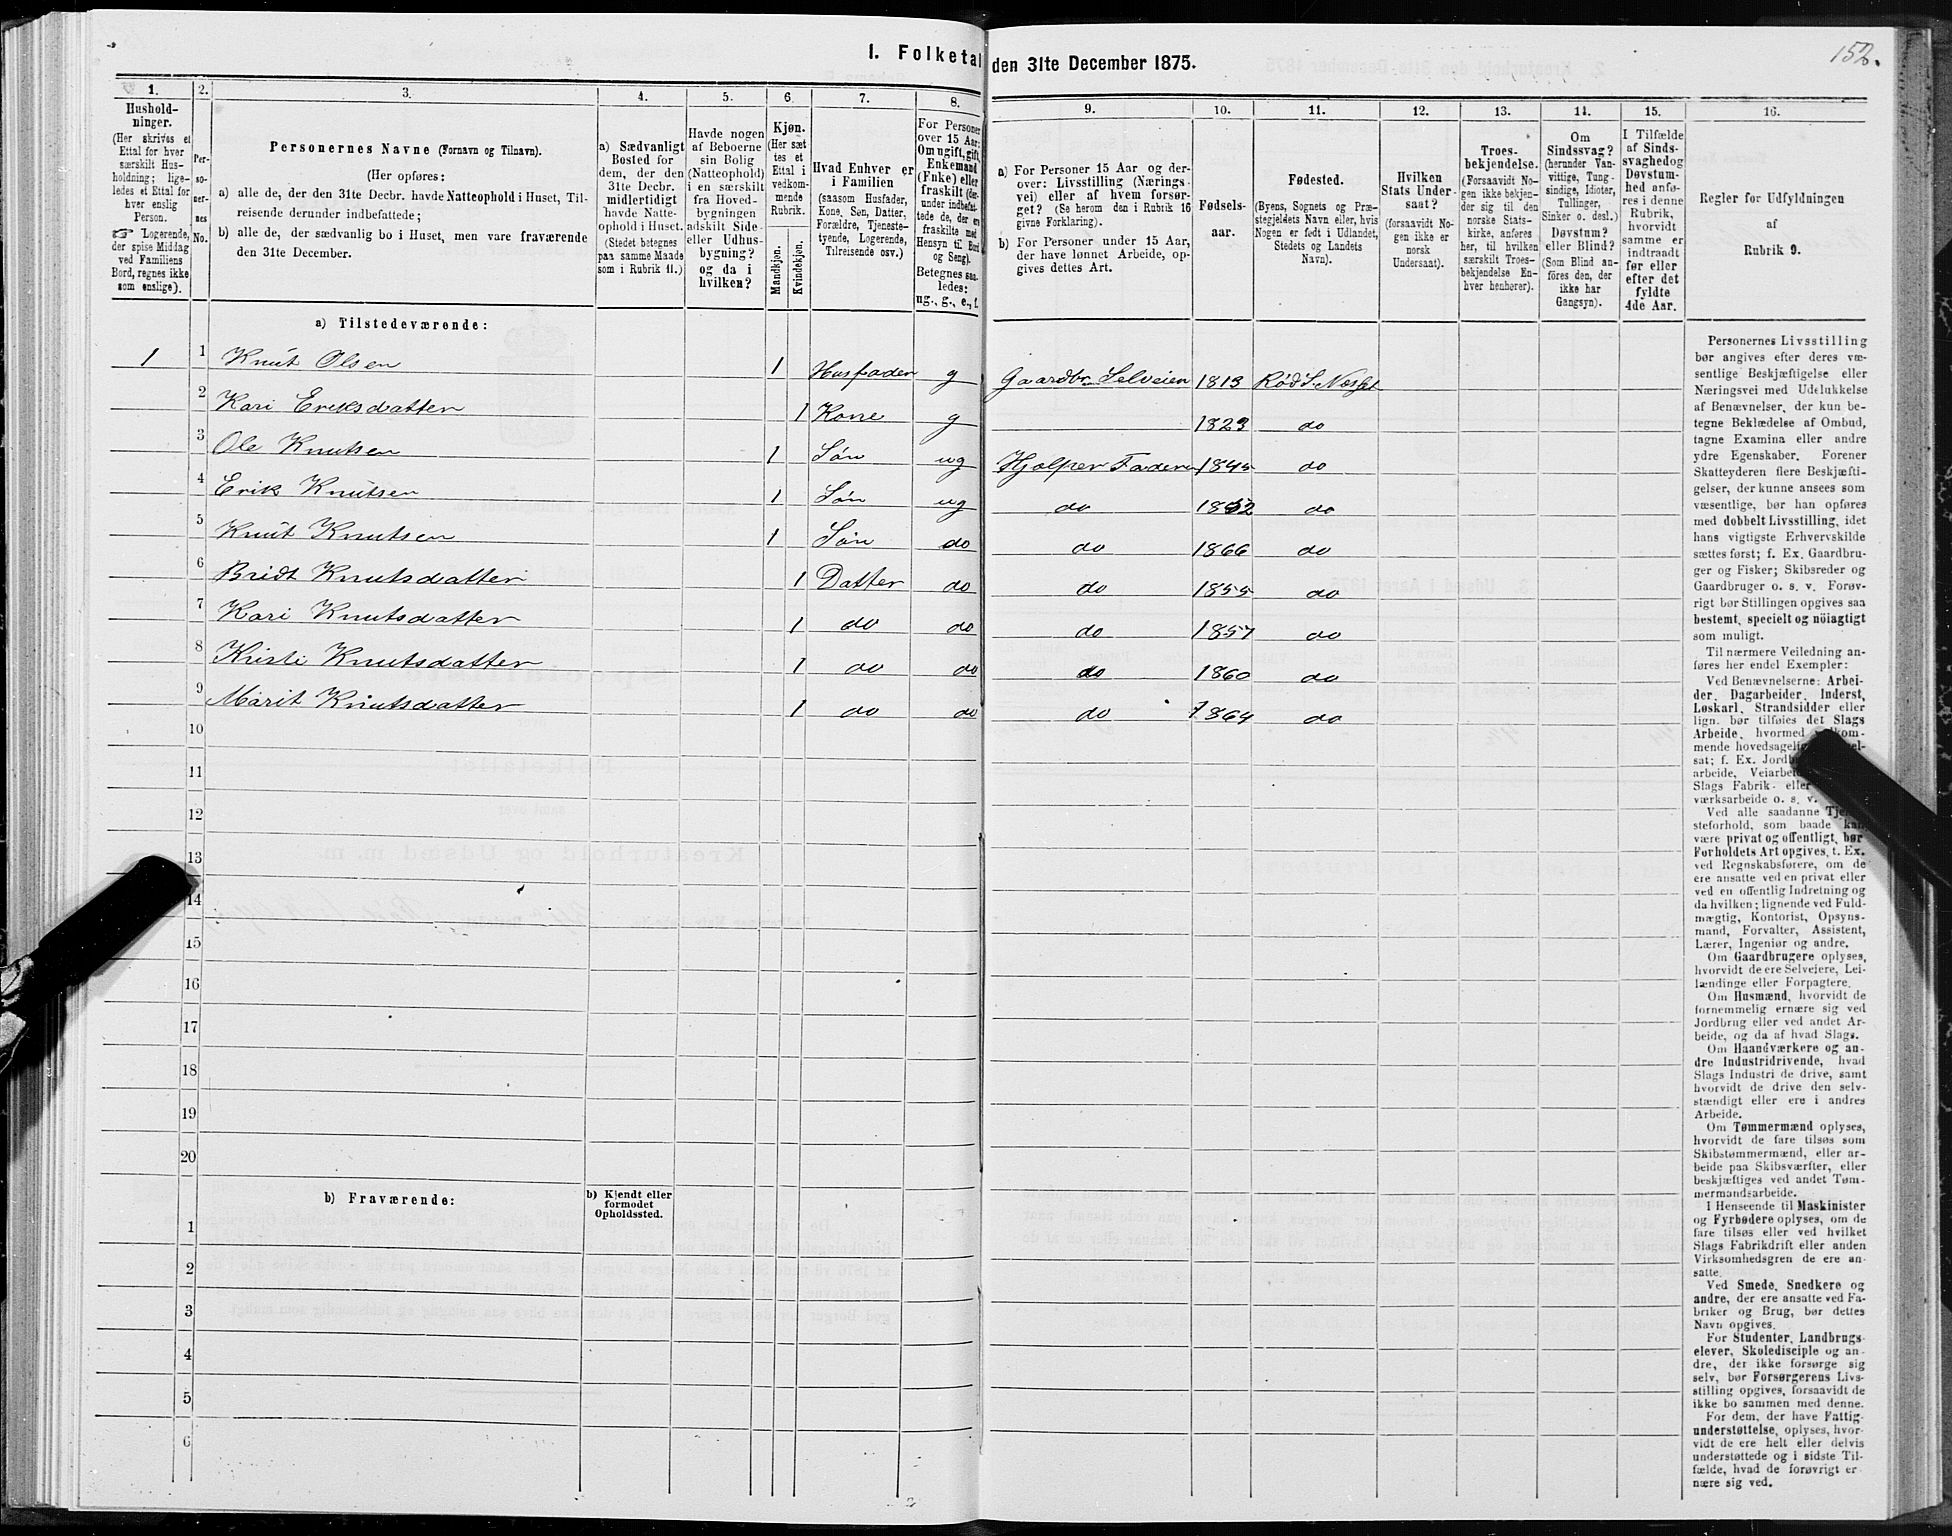 152.
I. Folketal den 31te December 1875.
1. 2. 3. 4. 5. 6. 7. 8. 9. 10. 11. 12. 13. 14. 15. 16.
Hushold-
ninger.
(Her skrives et
Ettal for hver
særskilt Hus-
holdning; lige-
ledes et Ettal for
hver enslig
Person.
☞ Logerende,
der spise Middag
ved Familiens
Bord, regnes ikke
som enslige).
Per-
so-
ner-
nes
No.
Personernes Navne (Fornavn og Tilnavn).
(Her opføres:
a) alle de, der den 31te Decbr. havde Natteophold i Huset, Til-
reisende derunder indbefattede;
b) alle de, der sædvanlig bo i Huset, men vare fraværende
den 31te December.
a) Sædvanligt
Bosted for
dem, der den
31te Decbr.
midlertidigt
havde Natte-
ophold i Huset.
(Stedet betegnes
paa samme Maade
som i Rubrik 11.)
Havde nogen
af Beboerne
sin Bolig
(Natteophold)
i en særskilt
fra Hoved-
bygningen
adskilt Side-
eller Udhus-
bygning?
og da i
hvilken?
Kjøn.
(Her sæt
tes et
Ettal i
vedkom-
mende
Rubrik.
Mandkjøn.
Kvindekjøn.
Hvad Enhver er
i Familien
(saasom Husfader,
Kone, Søn, Datter,
Forældre, Tjeneste-
tyende, Logerende,
Tilreisende osv.)
For Personer
over 15 Aar:
Om ugift, gift,
Enkemand
(Enke) eller
fraskilt (der-
under indbefat-
tede de, der ere
fraskilte med
Hensyn til Bord
og Seng).
Betegnes saa-
ledes:
ug., g., e., f.
a) For Personer 15 Aar og der-
over: Livsstilling (Nærings-
vei) eller af hvem forsør-
get? (Se herom den i Rubrik 16
givne Forklaring).
b) For Personer under 15 Aar,
der have lønnet Arbeide, op-
gives dettes Art.
Fødsels-
aar.
Fødested.
(Byens, Sognets og Præ-
stegjeldets Navn eller, hvis
Nogen er født i Udlandet,
Stedets og Landets
Navn).
Hvilken
Stats Under-
saat?
(forsaavidt No-
gen ikke er
norsk
Undersaat).
Troes-
bekjendelse.
(Forsaavidt No-
gen ikke bekjen-
der sig til den
norske Stats-
kirke, anføres
her, til hvilken
særskilt Troes-
bekjendelse En-
hver henhører).
Om
Sindssvag?
(herunder Van-
vittige, Tung-
sindige, Idioter,
Tullinger,
Sinker o. desl.)
Døvstum?
eller Blind?
(Som Blind an-
føres den, der
ikke har
Gangsyn).
I Tilfælde
af Sinds-
svaghed og
Døvstum-
hed anfø-
res i denne
Rubrik,
hvorvidt
samme er
indtraadt
før eller
efter det
fyldte
4de Aar.
Regler for Udfyldningen
af
Rubrik 9.
a) Tilstedeværende:
1 1 Knut Olsen 1 Husfader g Gaardbr. Selveier 1813 Rød S. Næsset
2 Kari Eriksdatter 1 Kone g 1823 do
3 Ole Knutsen 1 Søn ug Hjelper Faderen 1845 do
4 Erik Knutsen 1 Søn ug do 1852 do
5 Knut Knutsen 1 Søn do do 1866 do
6 Bridt Knutsdatter 1 Datter do do 1855 do
7 Kari Knutsdatter 1 do do do 1857 do
8 Kristi Knutsdatter 1 do do do 1860 do
9 Marit Knutsdatter 1 do do do 1864 do
10
11
12
13
14
15
16
17
18
19
20
b) Fraværende:
b) Kjendt eller
formodet
Opholdssted.
1
2
3
4
5
6
Personernes Livsstilling
bør angives efter deres væ-
sentlige Beskjæftigelse eller
Næringsvei med Udelukkelse
af Benævnelser, der kun be-
tegne Beklædelse af Ombud,
tagne Examina eller andre
ydre Egenskaber. Forener
Skatteyderen flere Beskjæfti-
gelser, der kunne ansees som
væsentlige, bør han opføres
med dobbelt Livsstilling, idet
hans vigtigste Erhvervskilde
sættes først; f. Ex. Gaardbru-
ger og Fisker; Skibsreder og
Gaardbruger o. s. v. Forøv-
rigt bør Stillingen opgives saa
bestemt, specielt og nöiagtigt
som muligt.
Til nærmere Veiledning an-
føres her endel Exempler:
Ved Benævnelserne: Arbei-
der, Dagarbeider, Inderst,
Løskarl, Strandsidder eller
lign. bør tilføies det Slags
Arbeide, hvormed
mende hovedsagelig
sat; f. Ex.
arbeide,
Slags Fabrik- eller
værksarbeide o. s. v.
Ved alle saadanne
steforhold, som baade kan
være privat og offentligt, bør
Forholdets Art opgives, t. Ex.
ved Regnskabsførere, om de
ere ansatte ved en privat eller
ved en offentlig Indretning og
da hvilken; lignende ved Fuld-
mægtig, Kontorist, Opsyns-
mand, Forvalter, Assistent,
Lærer, Ingeniør og andre.
Om Gaardbrugere oplyses,
hvorvidt de ere Selveiere, Lei-
lændinge eller Forpagtere.
Om Husmænd, hvorvidt de
fornemmelig ernære sig ved
Jordbrug eller ved andet Ar-
beide, og da af hvad Slags.
Om Haandværkere og an-
dre Industridrivende, hvad
Slags Industri de drive, samt
hvorvidt de drive den selv-
stændigt eller ere i andres
Arbeide.
Om Tømmermænd oplyses,
hvorvidt de fare tilsøs som
Skibstømmermænd, eller ar-
beide paa Skibsværfter, eller
beskjæftiges ved andet Tøm-
mermandsarbeide.
I Henseende til Maskinister
og Fyrbødere oplyses, om de
fare tilsøs eller ved hvilket
Slags Fabrikdrift eller anden
Virksomhedsgren de ere an-
satte.
Ved Smede, Snedkere og
andre, der ere ansatte ved Fa-
briker og Brug, bør dettes
Navn opgives.
For Studenter, Landbrugs-
elever, Skoledisciple og an-
dre, der ikke forsørge sig
selv, bør Forsørgerens Livs-
stilling opgives, forsaavidt de
ikke bo sammen med denne.
For dem, der have Fattig-
understøttelse, oplyses, hvor-
vidt de ere helt eller delvis
understøttede og i sidste Til-
fælde, hvad de forøvrigt er-
nære sig ved.